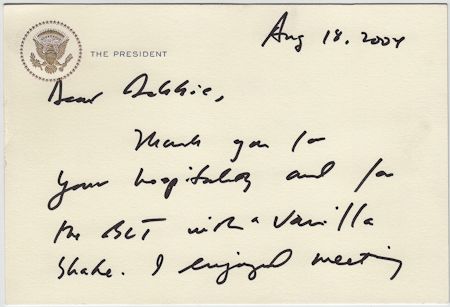 THE PRESIDENT
Aug 18, 2004
Dear Debbie,
Thank you for
your hospitality and for
the BLT with a Vanilla
Shake. I enjoyed meeting